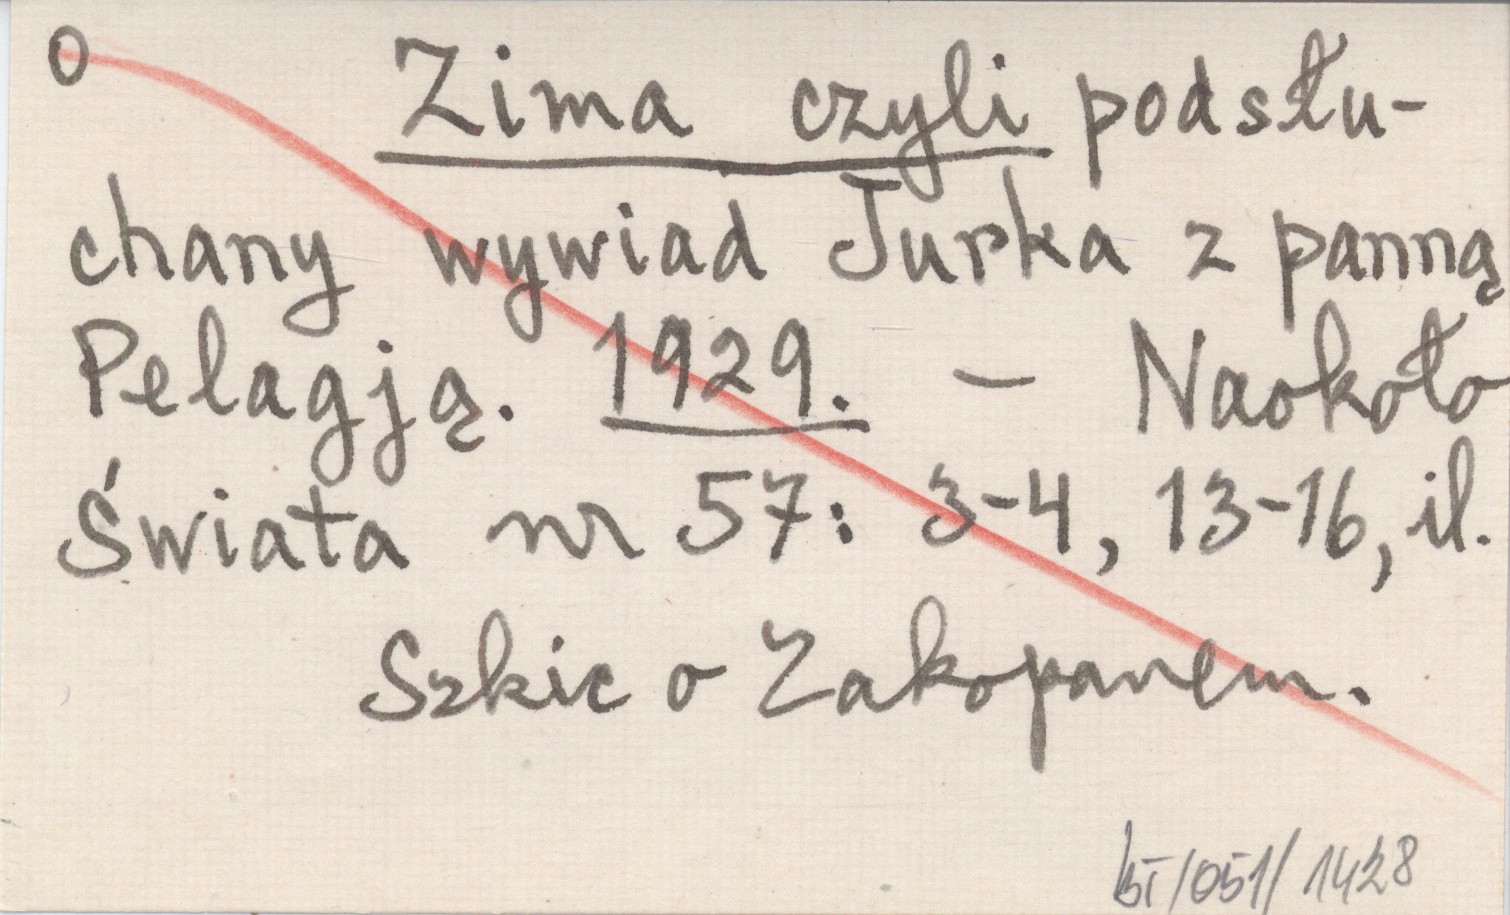 O Zima czyli podsłu-
chany wywiad Jurka z panną
Pelagją. 1929. – Naokoło
Świata nr 57: 3-4, 13-16, il.
Szkic o Zakopanem.
BT/051/1428